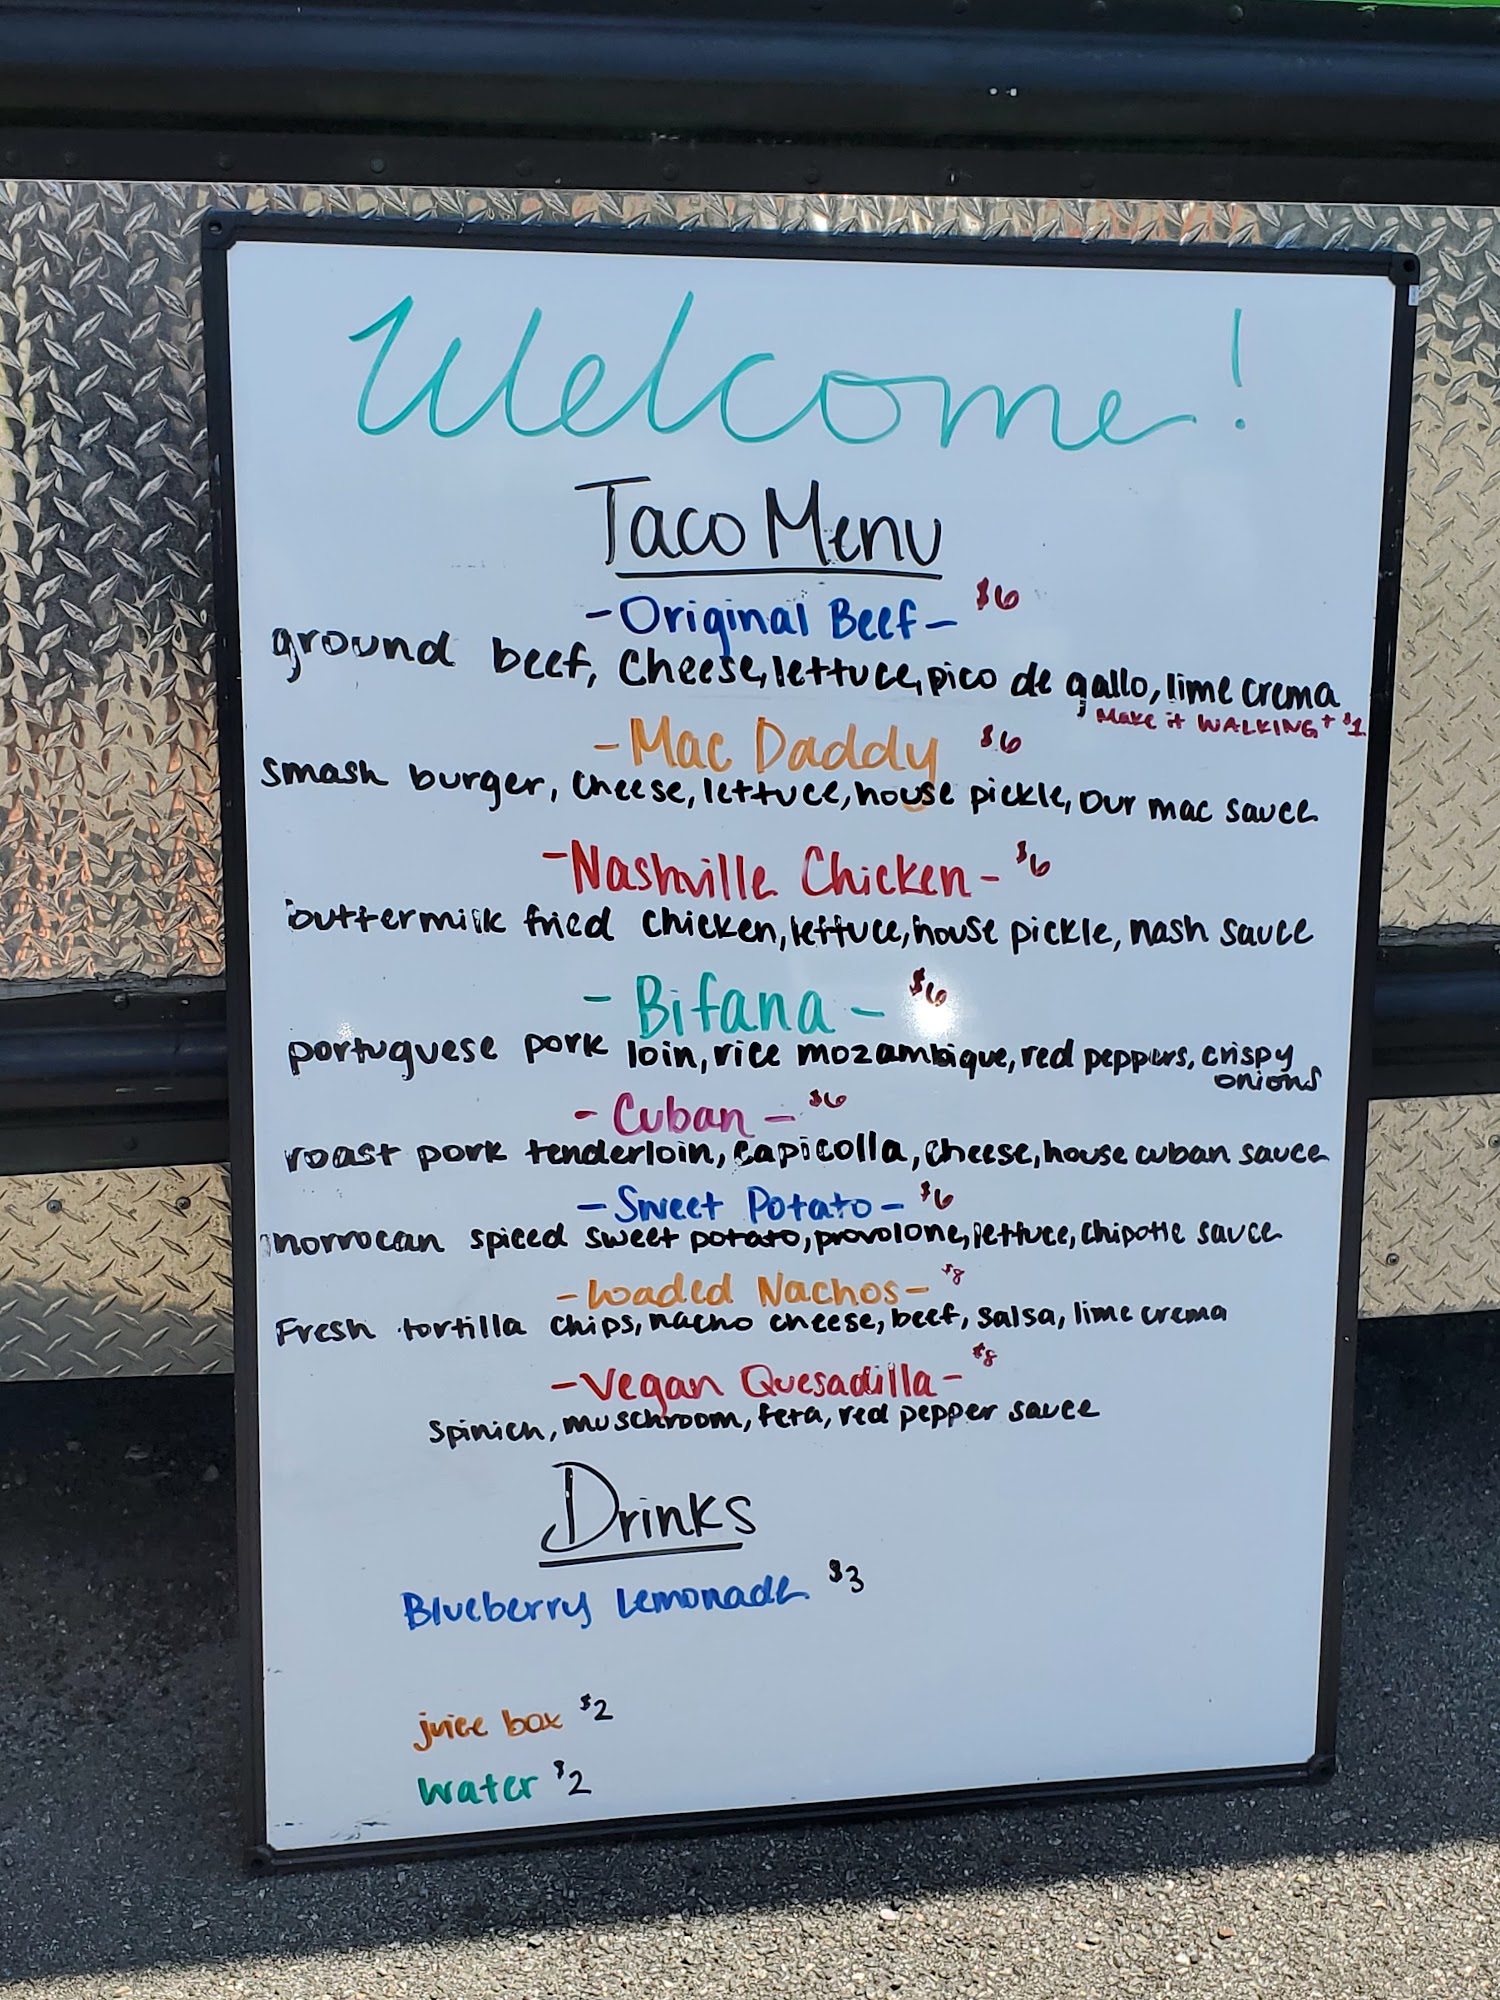 Welcome!
Taco Menu
- Original Beef - $6
ground beef, Cheese, lettuce, pico de gallo, lime crema
Make it WALKING + $1
- Mac Daddy $6
smash burger, cheese, lettuce, house pickle, our mac sauce
- Nashville Chicken - $6
buttermilk fried chicken, lettuce, house pickle, nash sauce
- Bifana - $6
portuguese pork loin, rice mozambique, red peppers, crispy
onions
- Cuban - $6
roast pork tenderloin, capicolla, cheese, house cuban sauce
- Sweet Potato - $6
morrocan spiced sweet potato, provolone, lettuce, chipotle sauce
- Loaded Nachos - $8
Fresh tortilla chips, nacho cheese, beef, salsa, lime crema
- Vegan Quesadilla - $8
spinich, muschroom, feta, red pepper sauce
Drinks
Blueberry Lemonade $3
juice box $2
water $2